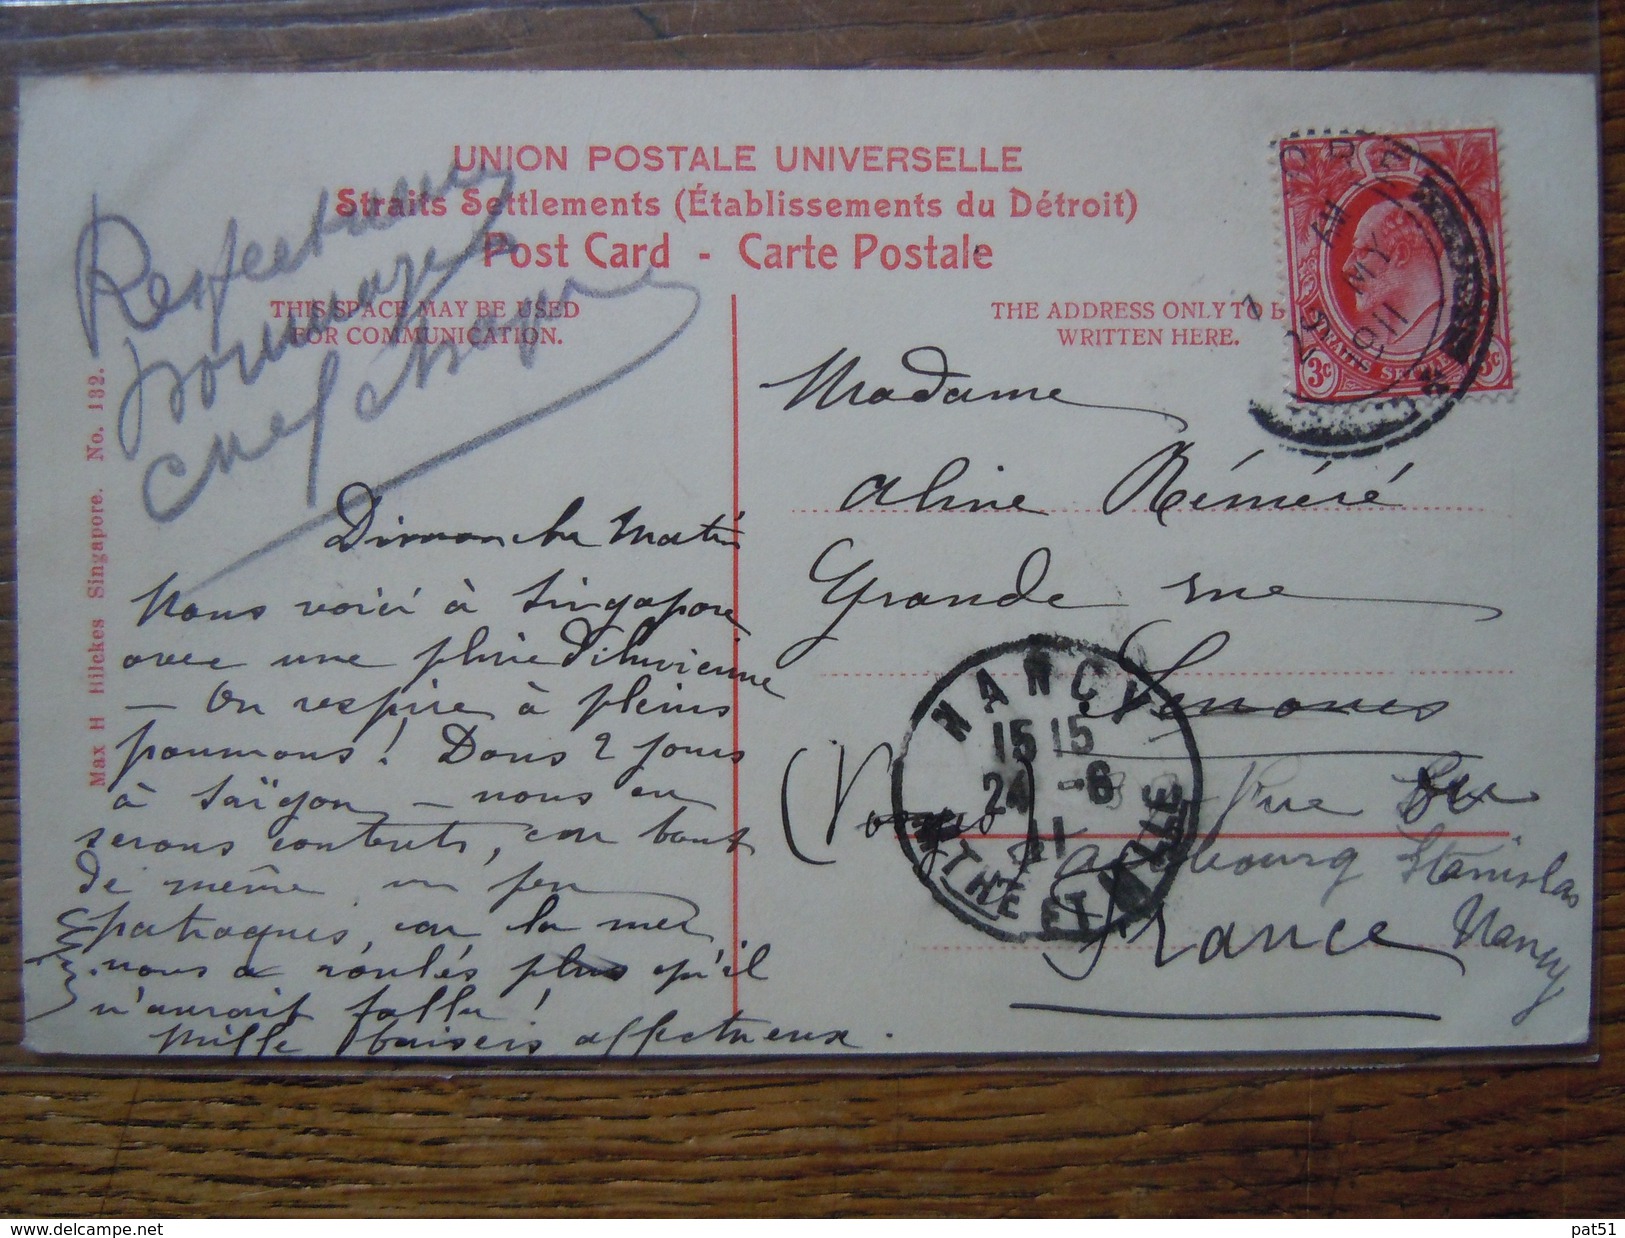 UNION POSTALE UNIVERSELLE
Straits Settlements (Établissements du Détroit)
Post Card - Carte Postale
THIS SPACE MAY BE USED
FOR COMMUNICATION.
THE ADDRESS ONLY TO B
WRITTEN HERE.
Max H Hilckes Singapore. No. 132.
Respectueux
hommages
Dimanche Matin
Nous voici à Singapore
avec une pluie Diluvienne
— On respire à pleins
poumons! Dans 2 jours
à Saïgon — nous en
serons contents, car tout
de même un peu
patraques, car la mer
nous a roulés plus qu'il
n'aurait fallu!
Mille baisers affectueux.
Madame
Aline Réméré
Grande rue
(Vosges)
Rue du
Faubourg Stanislas
Nancy
France
NANCY
15 15
24 -6
11
MTHE ET MLLE
ORE
MY
1911
STRAITS SETTLE
3c
3c
delcampe.net
pat51